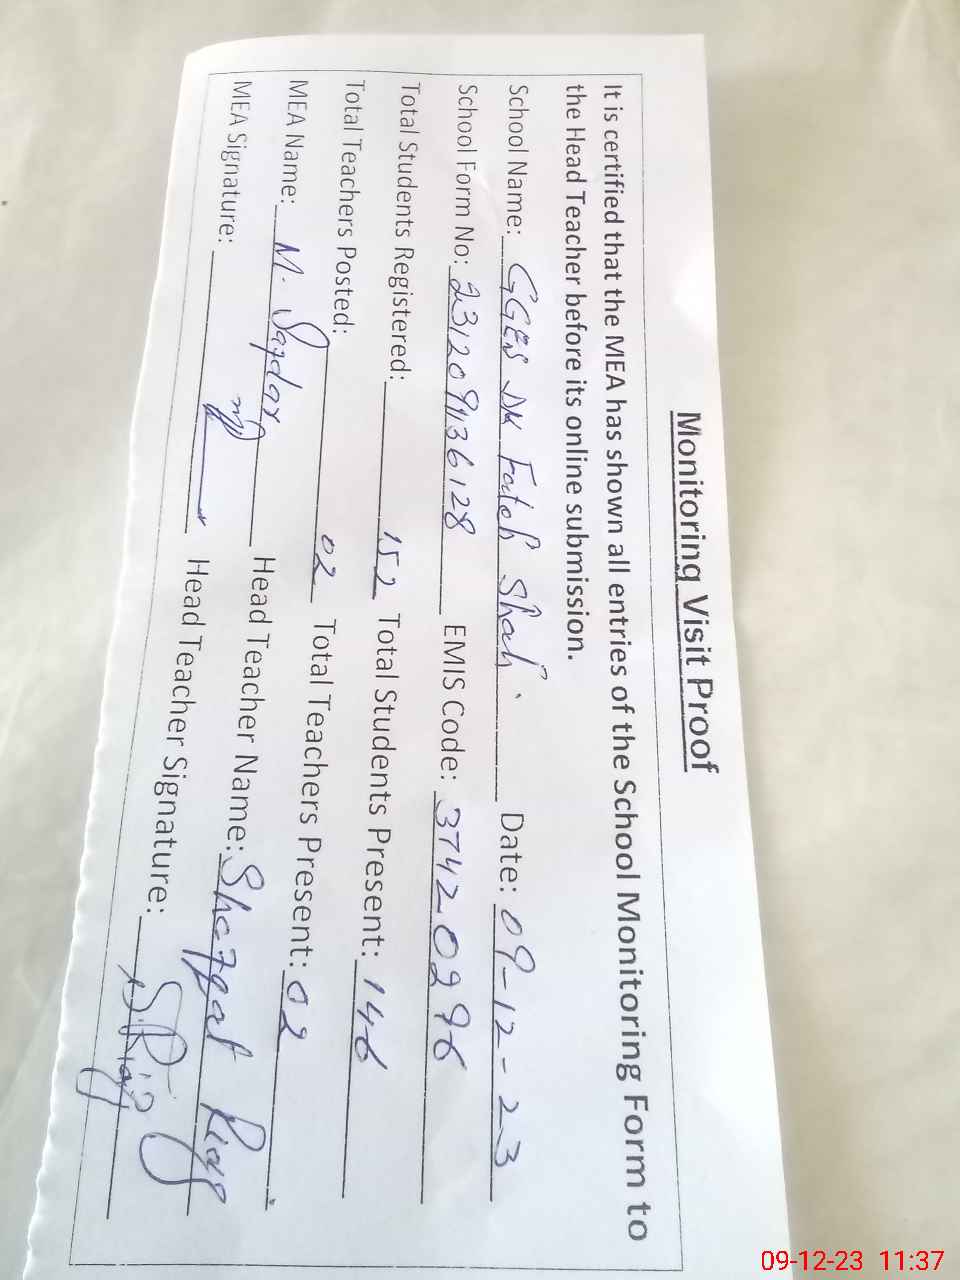 Monitoring Visit Proof
It is certified that the MEA has shown all entries of the School Monitoring Form to
the Head Teacher before its online submission.
School Name: GGES DK Fateh Shah. Date: 09-12-23
School Form No: 231209136128 EMIS Code: 37420296
Total Students Registered: 152 Total Students Present: 146
Total Teachers Posted: 02 Total Teachers Present: 02
MEA Name: M. Safdar Head Teacher Name: Shafqat Riaz
MEA Signature: Head Teacher Signature: S.Riaz
09-12-23 11:37